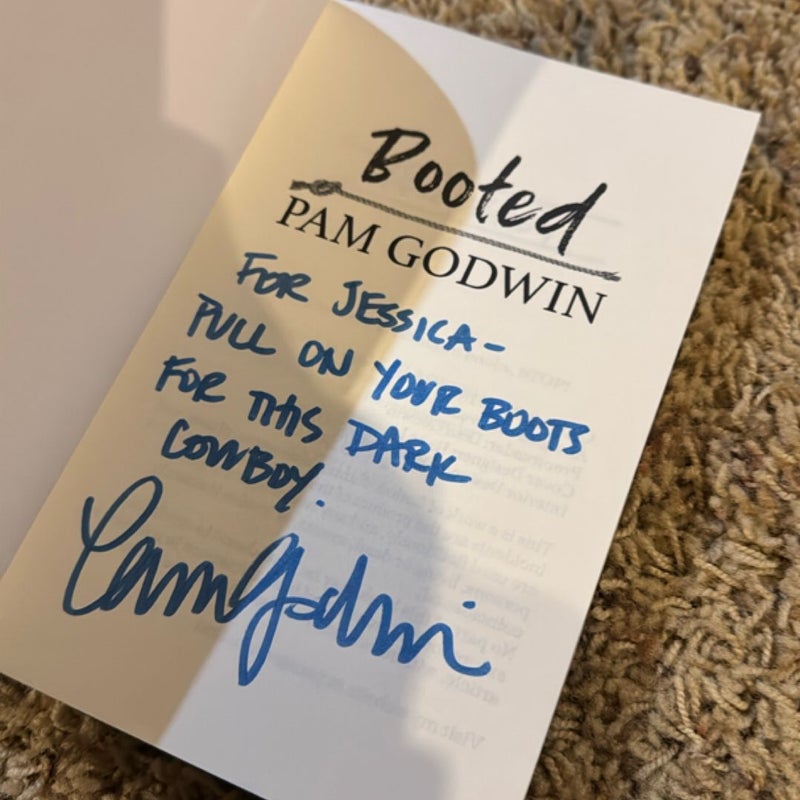 Booted
PAM GODWIN
FOR JESSICA-
PULL ON YOUR BOOTS
FOR THIS DARK
COWBOY.
Pam Godwin